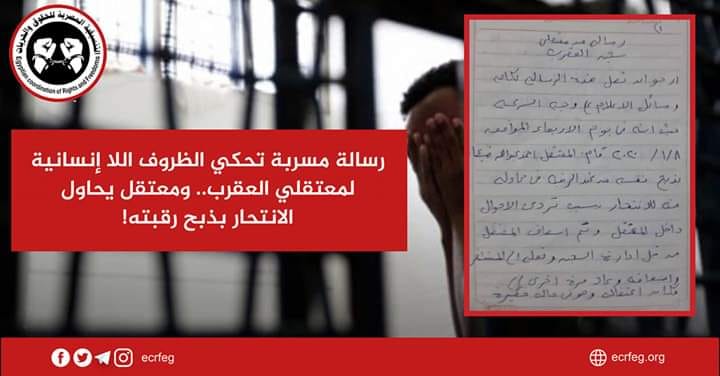 التنسيقية المصرية للحقوق والحريات
Egyptian coordination of Rights and Freedoms
رسالة مسربة تحكي الظروف اللا إنسانية
لمعتقلي العقرب.. ومعتقل يحاول
الانتحار بذبح رقبته!
رسالة من معتقلي
سجن العقرب
ارجو ان تصل هذه الرسالة لكافة
وسائل الاعلام وجه السرعة
حيث انه في يوم الاربعاء الموافق
٢٠٢٠/١/٨ قام المعتقل
بذبح نفسه من الرقبة في محاولة
منه للانتحار بسبب تردي الاحوال
داخل المعتقل وتم اسعاف المعتقل
من قبل ادارة السجن المستشفى
واسعافه وعاد مرة اخرى
وهو في حالة خطيرة
ecrfeg
ecrfeg.org